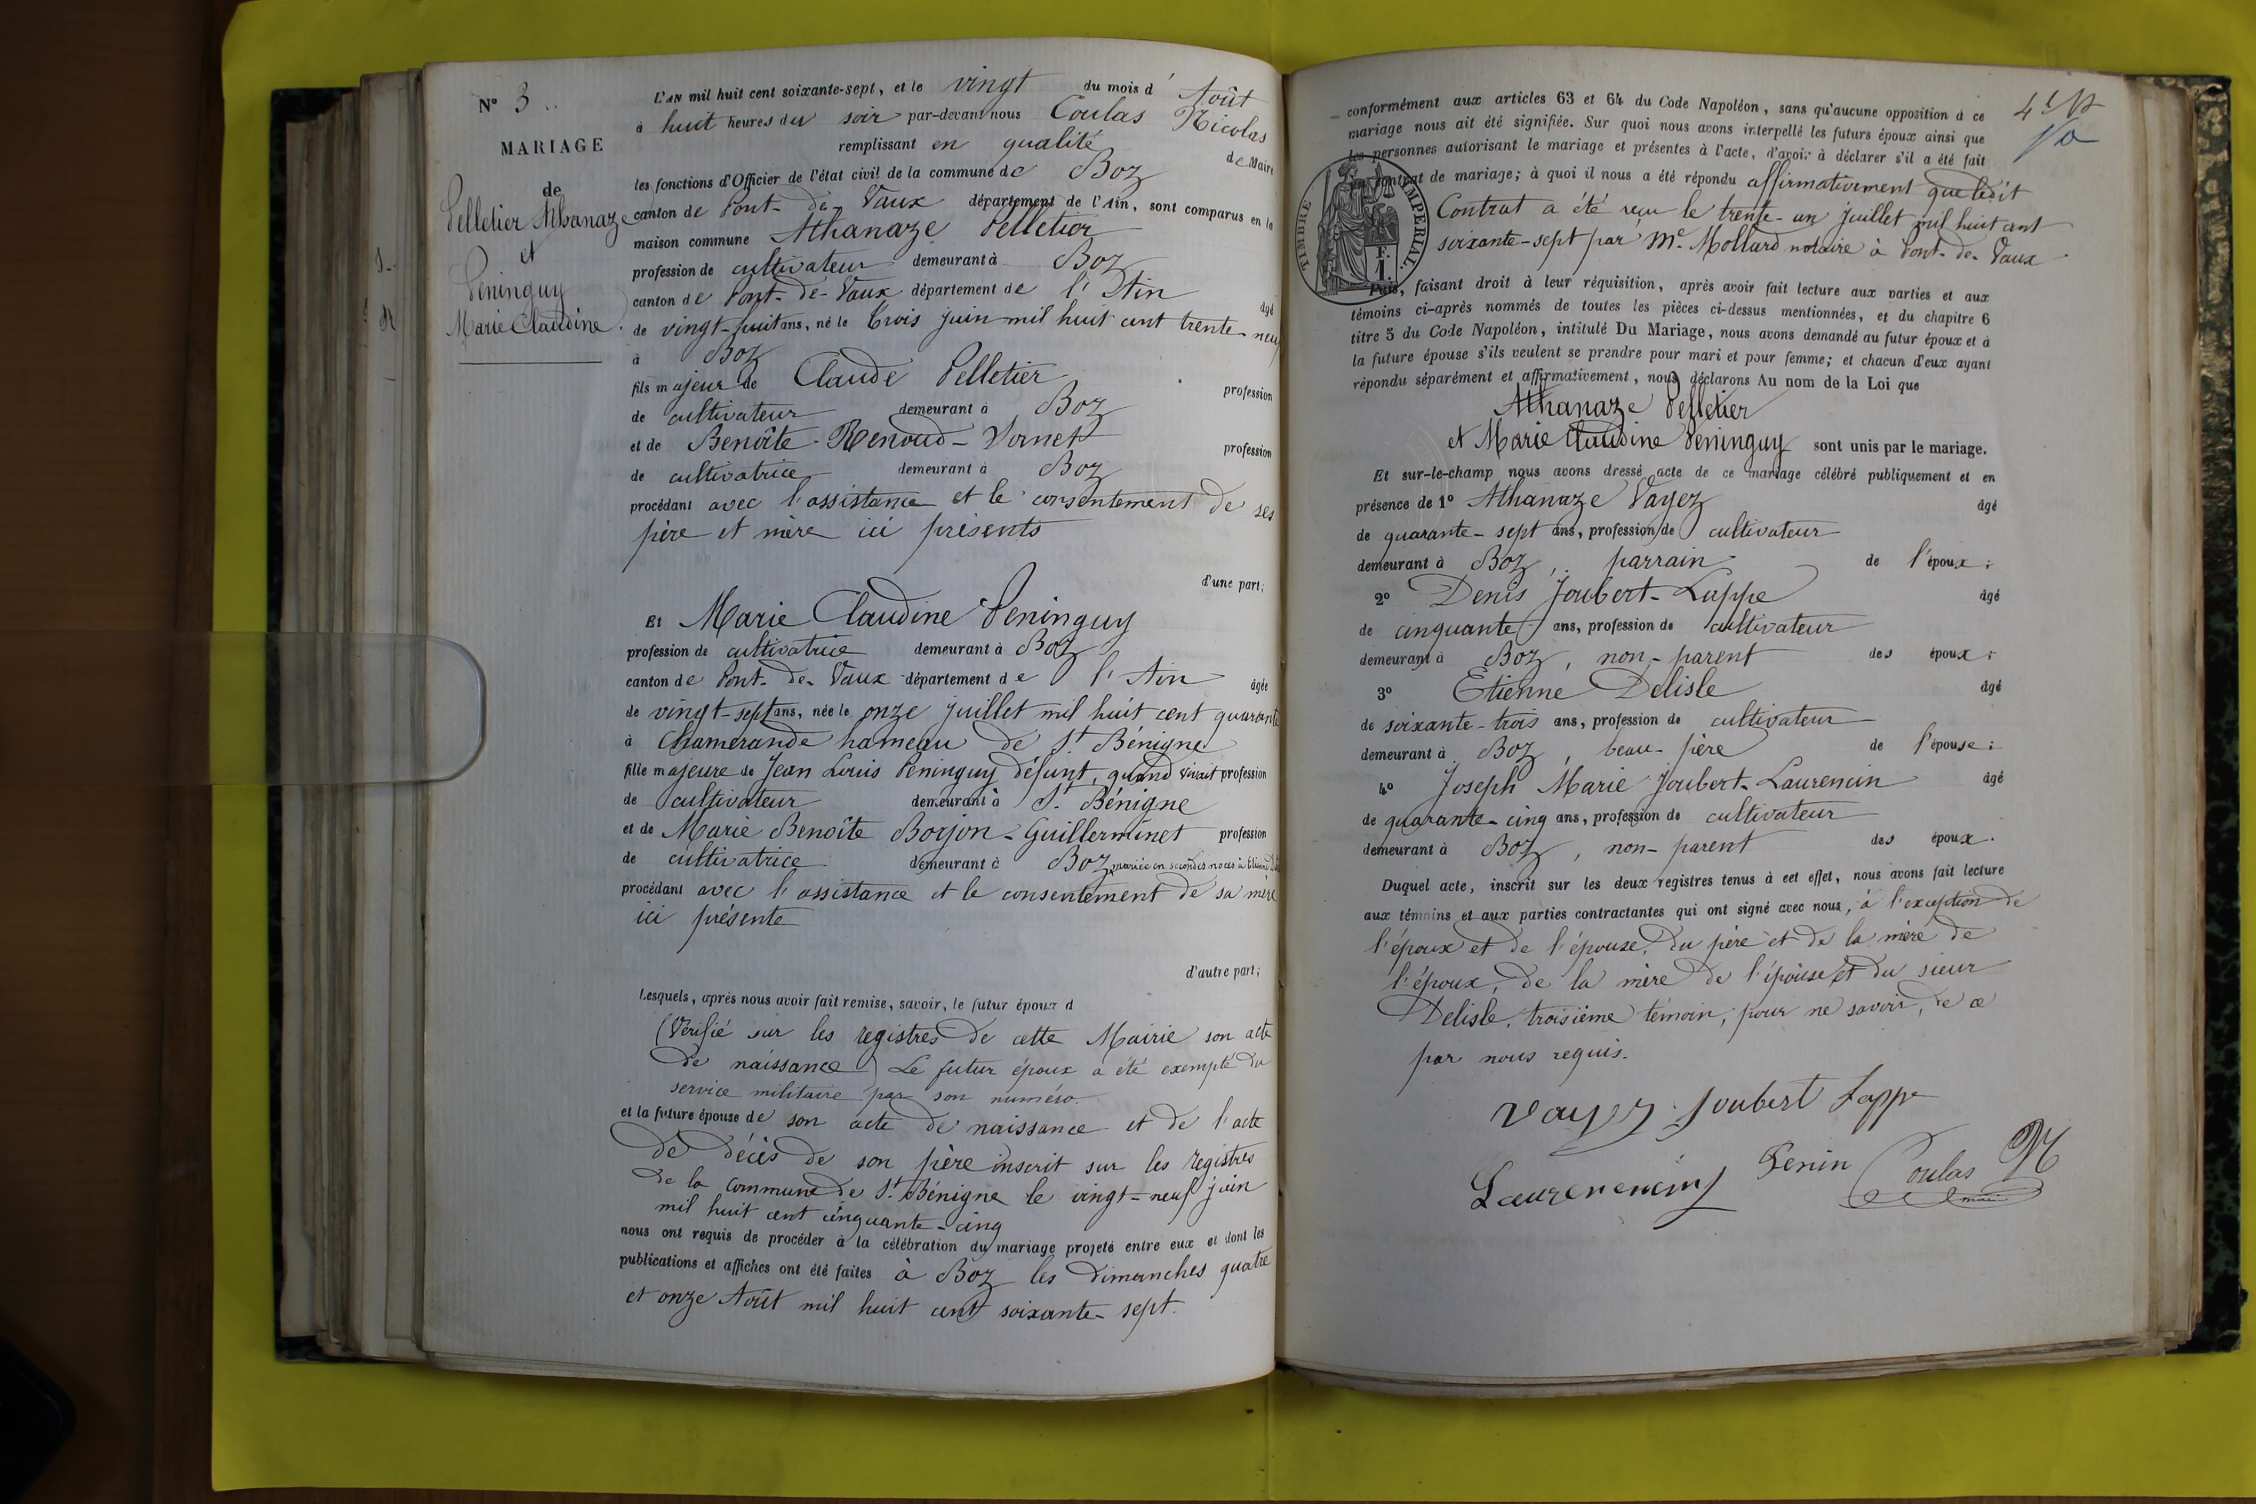 N° 3
MARIAGE
de
Pelletier Athanaze
et
Peninguy
Marie Claudine.
L'AN mil huit cent soixante-sept, et le vingt du mois d' Août
à huit heures du soir par-devant nous Coulas Nicolas
remplissant en qualité de Maire
les fonctions d'Officier de l'état civil de la commune de Boz
canton de Pont-de-Vaux département de l'Ain, sont comparus en la
maison commune Athanaze Pelletier
profession de cultivateur demeurant à Boz
canton de Pont-de-Vaux département de l'Ain âgé
de vingt-huit ans, né le trois juin mil huit cent trente-neuf
à Boz
fils majeur de Claude Pelletier profession
de cultivateur demeurant à Boz
et de Benoîte Renoud-Vornet profession
de cultivatrice demeurant à Boz
procédant avec l'assistance et le consentement de ses
père et mère ici présents
d'une part;
Et Marie Claudine Peninguy
profession de cultivatrice demeurant à Boz
canton de Pont-de-Vaux département de l'Ain âgée
de vingt-sept ans, née le onze juillet mil huit cent quarante
à Chamerande hameau de St Bénigne
fille majeure de Jean Louis Peninguy défunt, quand vivait profession
de cultivateur demeurant à St Bénigne
et de Marie Benoîte Borjon-Guillerminet profession
de cultivatrice demeurant à Boz, mariée en secondes noces à Etienne
procédant avec l'assistance et le consentement de sa mère
ici présente
d'autre part;
Lesquels, après nous avoir fait remise, savoir, le futur époux d
(Vérifié sur les registres de cette Mairie son acte
de naissance) Le futur époux a été exempté du
service militaire par son numéro.
et la future épouse de son acte de naissance et de l'acte
de décès de son père inscrit sur les registres
de la commune de St Bénigne le vingt-neuf juin
mil huit cent cinquante-cinq
nous ont requis de procéder à la célébration du mariage projeté entre eux et dont les
publications et affiches ont été faites à Boz les dimanches quatre
et onze Août mil huit cent soixante-sept.
conformément aux articles 63 et 64 du Code Napoléon, sans qu'aucune opposition à ce
mariage nous ait été signifiée. Sur quoi nous avons interpellé les futurs époux ainsi que
les personnes autorisant le mariage et présentes à l'acte, d'avoir à déclarer s'il a été fait
un contrat de mariage; à quoi il nous a été répondu affirmativement que ledit
Contrat a été reçu le trente-un juillet mil huit cent
soixante-sept par Me Mollard notaire à Pont-de-Vaux.
TIMBRE IMPERIAL.
1 F.
Puis, faisant droit à leur réquisition, après avoir fait lecture aux parties et aux
témoins ci-après nommés de toutes les pièces ci-dessus mentionnées, et du chapitre 6
titre 5 du Code Napoléon, intitulé Du Mariage, nous avons demandé au futur époux et à
la future épouse s'ils veulent se prendre pour mari et pour femme; et chacun d'eux ayant
répondu séparément et affirmativement, nous déclarons Au nom de la Loi que
Athanaze Pelletier
et Marie Claudine Peninguy sont unis par le mariage.
Et sur-le-champ nous avons dressé acte de ce mariage célébré publiquement et en
présence de 1° Athanaze Vayez âgé
de quarante-sept ans, profession de cultivateur
demeurant à Boz, parrain de l'époux;
2° Denis Joubert-Lappe âgé
de cinquante ans, profession de cultivateur
demeurant à Boz, non-parent des époux;
3° Etienne Delisle âgé
de soixante-trois ans, profession de cultivateur
demeurant à Boz, beau-père de l'épouse;
4° Joseph Marie Joubert-Laurencin âgé
de quarante-cinq ans, profession de cultivateur
demeurant à Boz, non-parent des époux.
Duquel acte, inscrit sur les deux registres tenus à cet effet, nous avons fait lecture
aux témoins et aux parties contractantes qui ont signé avec nous, à l'exception de
l'époux et de l'épouse, du père et de la mère de
l'époux, de la mère de l'épouse et du sieur
Delisle, troisième témoin, pour ne savoir, de ce
par nous requis.
Vayez Joubert Lappe
Laurencin Penin Coulas N
maire